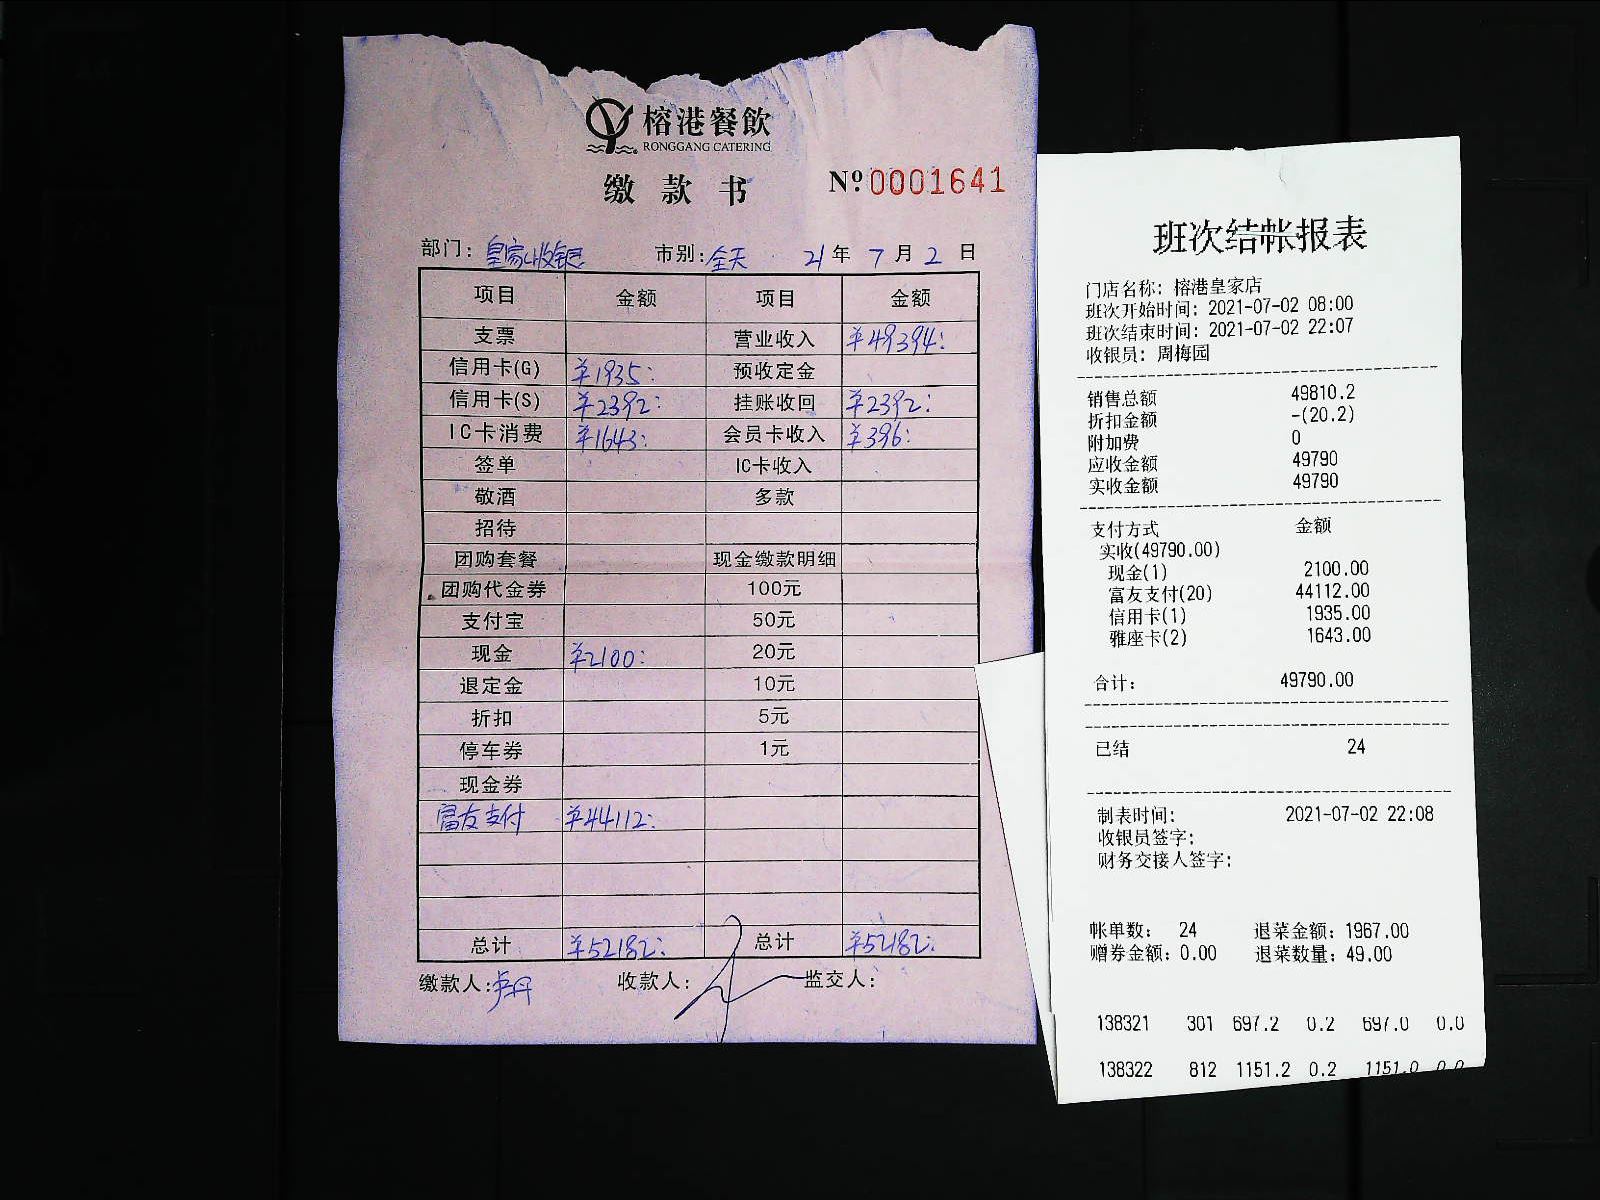 榕港餐飲
RONGGANG CATERING
缴款书
№ 0001641
部门: 皇家收银 市别: 全天 21年7月2日
项目 金额 项目 金额
支票 营业收入 ¥49394:
信用卡(G) ¥1935: 预收定金
信用卡(S) ¥2392: 挂账收回 ¥2392:
IC卡消费 ¥1643: 会员卡收入 ¥396:
签单 IC卡收入
敬酒 多款
招待
团购套餐 现金缴款明细
团购代金券 100元
支付宝 50元
现金 ¥2100: 20元
退定金 10元
折扣 5元
停车券 1元
现金券
富友支付 ¥44112:
总计 ¥52182: 总计 ¥52182:
缴款人: 卢丹 收款人: 监交人:
班次结帐报表
门店名称: 榕港皇家店
班次开始时间: 2021-07-02 08:00
班次结束时间: 2021-07-02 22:07
收银员: 周梅园
销售总额 49810.2
折扣金额 -(20.2)
附加费 0
应收金额 49790
实收金额 49790
支付方式 金额
实收(49790.00)
现金(1) 2100.00
富友支付(20) 44112.00
信用卡(1) 1935.00
雅座卡(2) 1643.00
合计: 49790.00
已结 24
制表时间: 2021-07-02 22:08
收银员签字:
财务交接人签字:
帐单数: 24 退菜金额: 1967.00
赠券金额: 0.00 退菜数量: 49.00
138321 301 697.2 0.2 697.0 0.0
138322 812 1151.2 0.2 1151.0 0.0